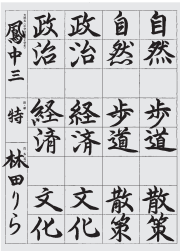 自然
歩道
散策
自然
歩道
散策
政治
経済
文化
政治
経済
文化
鳳中三 特 林田りら